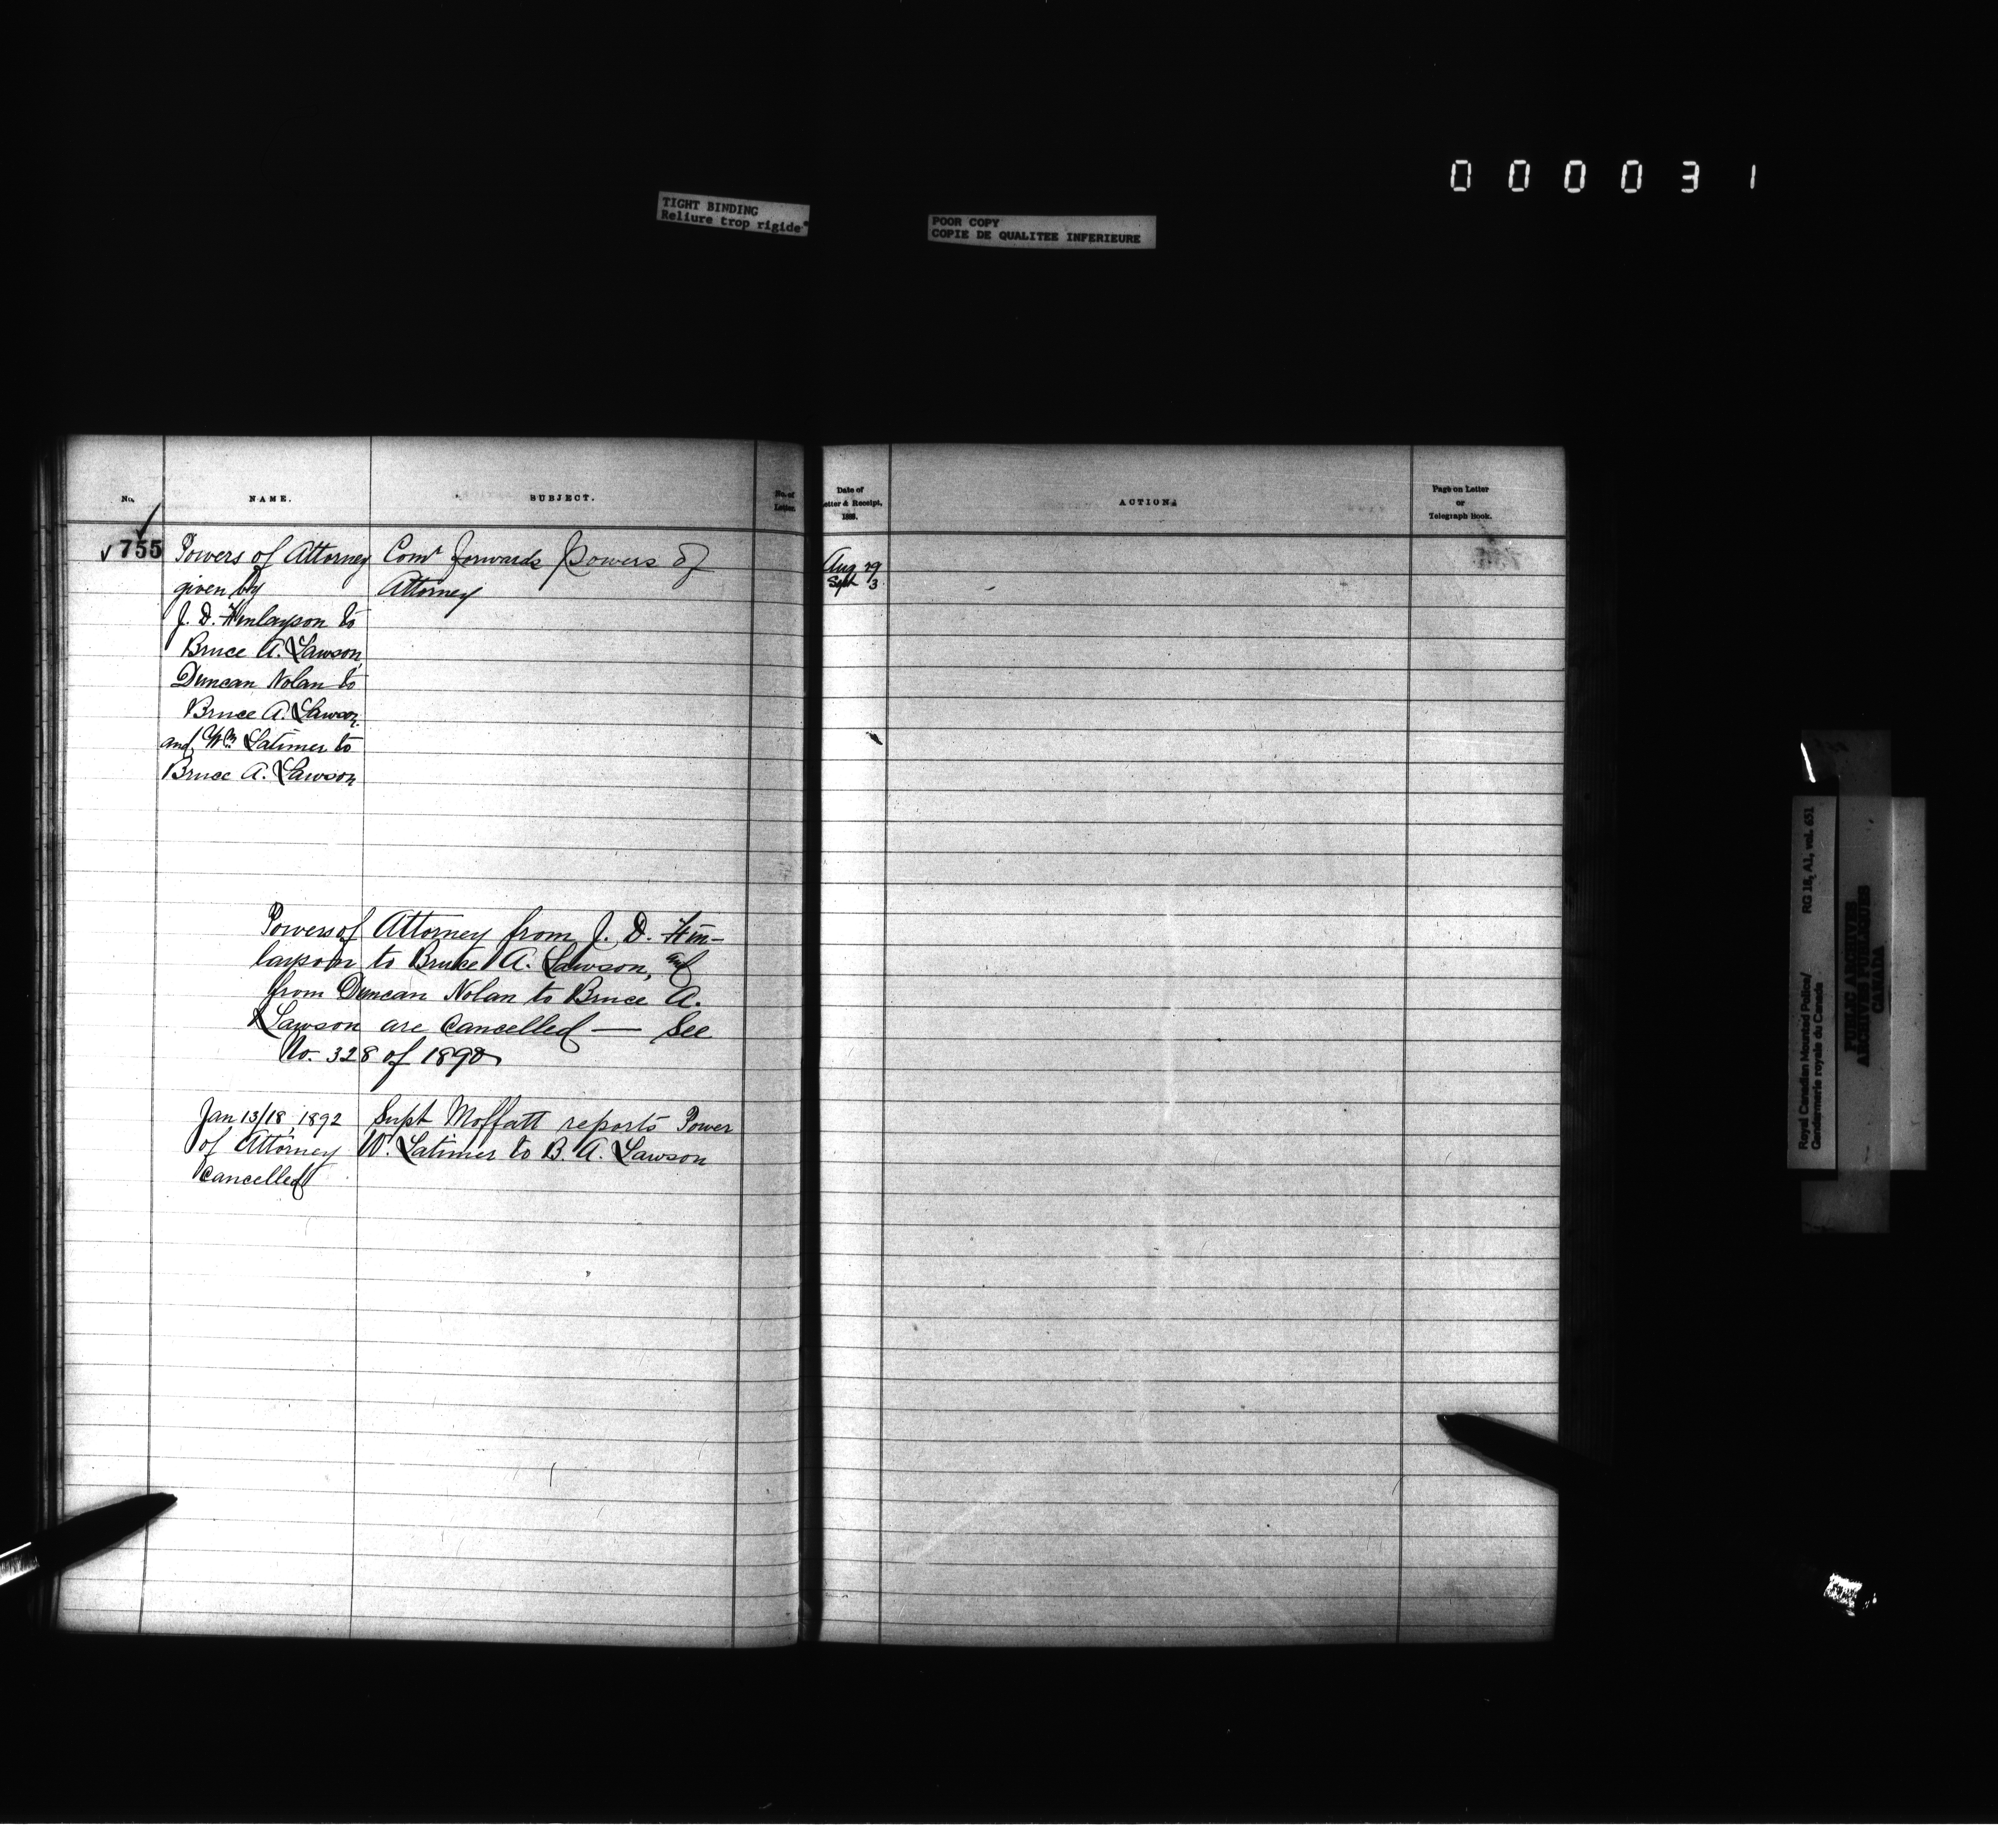 000031
TIGHT BINDING
Reliure trop rigide
POOR COPY
COPIE DE QUALITEE INFERIEURE
No.
NAME.
SUBJECT.
No. of
Letter.
Date of
Letter & Receipt.
188 .
ACTION.
Page on Letter
or
Telegraph Book.
755
Powers of Attorney
given by
J. D. Finlayson to
Bruce A. Lawson,
Duncan Nolan to
Bruce A. Lawson.
and Wm Latimer to
Bruce A. Lawson
Comr forwards powers of
Attorney
Aug 29
Sept 3.
Powers of Attorney from J. D. Fin-
layson to Bruce A. Lawson, and
from Duncan Nolan to Bruce A.
Lawson are cancelled — See
No. 328 of 1890
Jan 13/18, 1892 Supt Moffatt reports Power
of Attorney W. Latimer to B. A. Lawson
cancelled
Royal Canadian Mounted Police/ RG 18, A1, vol. 651
Gendarmerie royale du Canada
PUBLIC ARCHIVES
ARCHIVES PUBLIQUES
CANADA